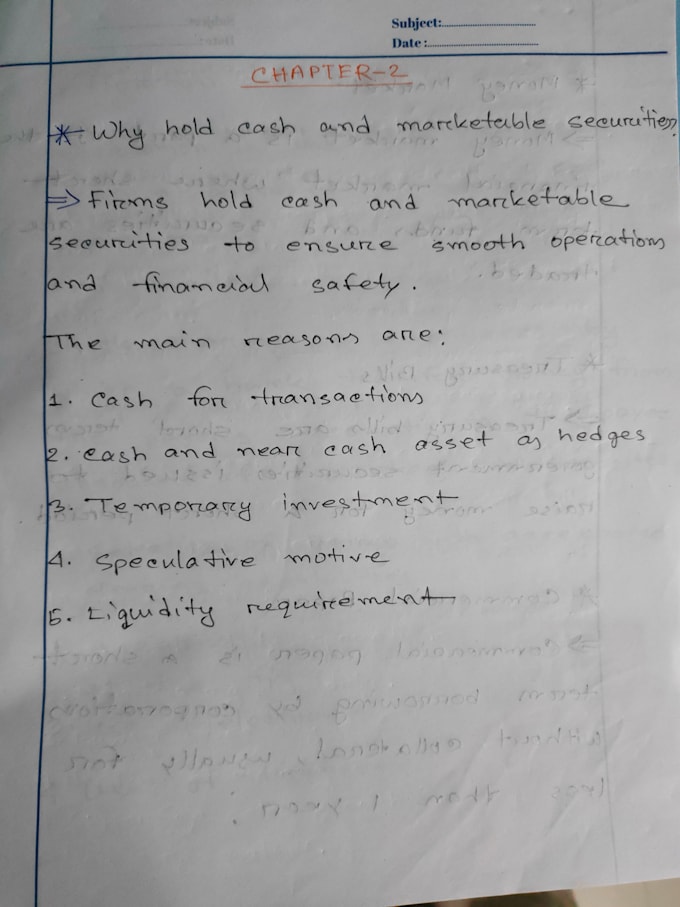 Subject:
Date:
CHAPTER-2
* Why hold cash and marketable securities?
⇒ Firms hold cash and marketable
securities to ensure smooth operations
and financial safety.
The main reasons are:
1. Cash for transactions
2. cash and near cash asset as hedges
3. Temporary investment
4. Speculative motive
5. Liquidity requirement